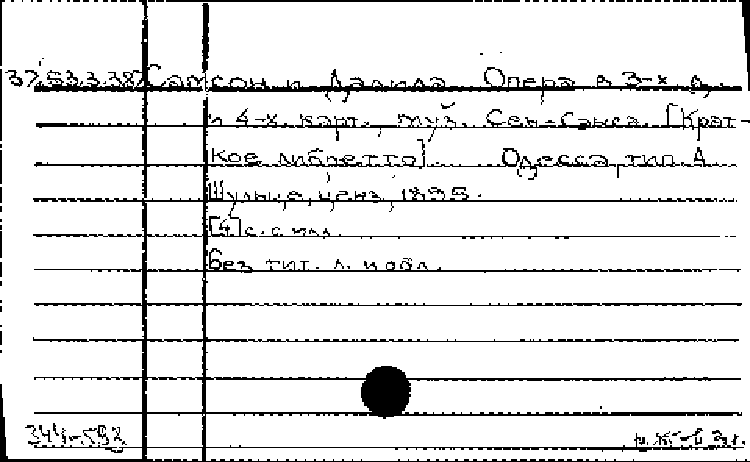 37.53.3.38. Самсон и Далила. Опера в 3-х д.
и 4-х карт., муз. Сен-Санса. [Крат-
кое либретто]. Одесса, тип. А.
Шульце, ценз. 1895.
[4] с. с илл.
Без тит. л. и обл.
344-593